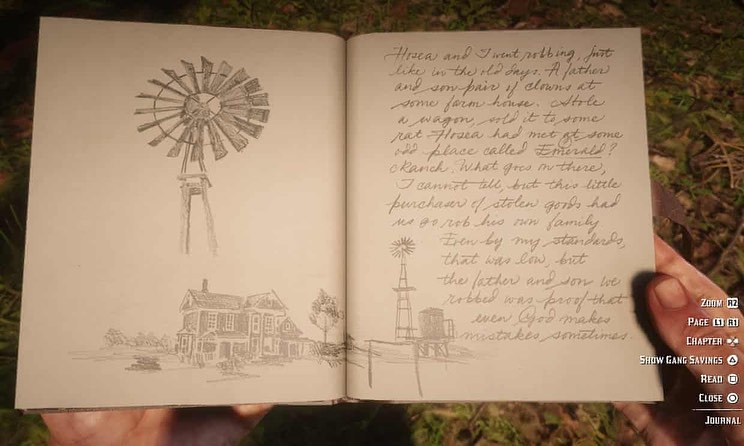 Hosea and I went robbing, just
like in the old days. A father
and son pair of clowns at
some farm house. Stole
a wagon, sold it to some
rat Hosea had met at some
odd place called Emerald?
Ranch. What goes on there,
I cannot tell, but this little
purchaser of stolen goods had
us go rob his own family
Even by my standards,
that was low, but
the father and son we
robbed was proof that
even God makes
mistakes sometimes.
ZOOM R2
PAGE L1 R1
CHAPTER
SHOW GANG SAVINGS
READ
CLOSE
JOURNAL